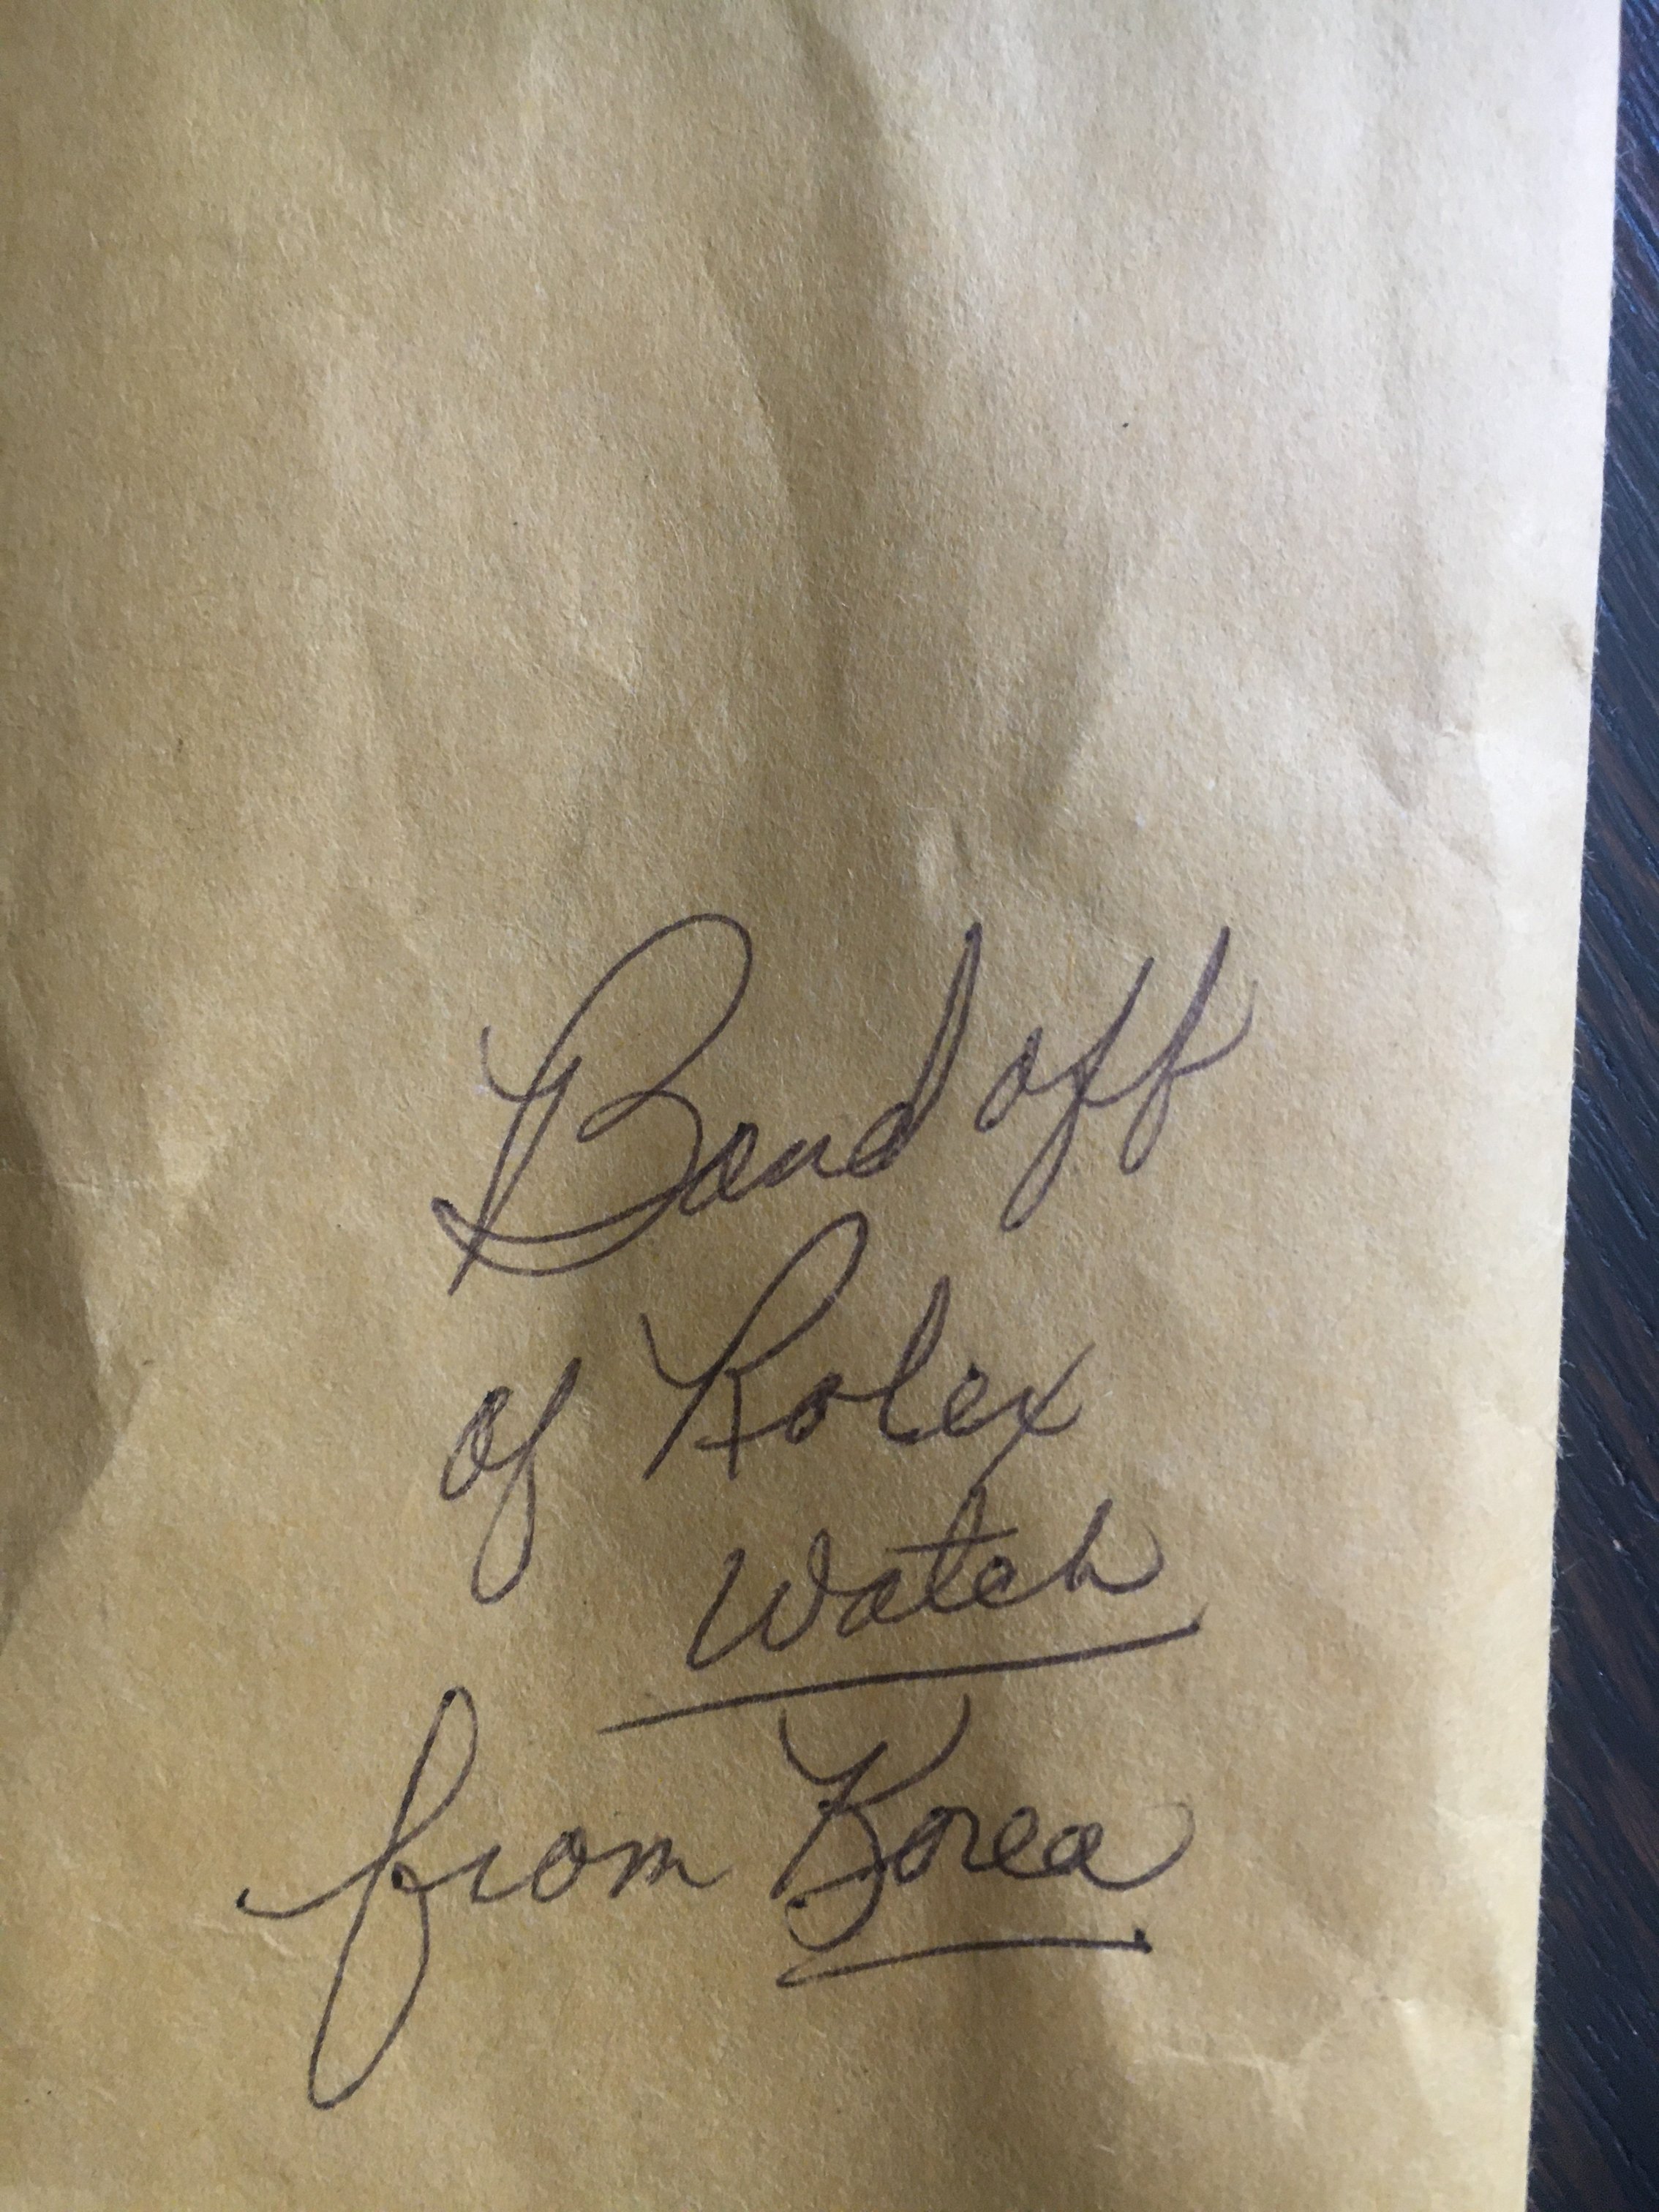 Band off
of Rolex
Watch
from Korea